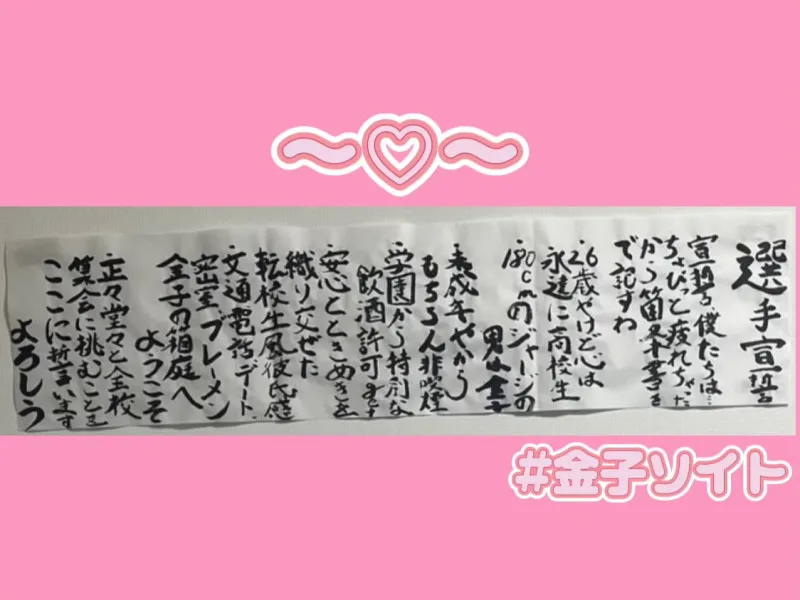 選手宣誓
宣誓、僕たちは…
ちょびと疲れちゃった
から箇条書き
で記すわ
・26歳やけど心は
永遠に高校生
・180cmのジャージの
男は金子
・未成年やから
もちろん非喫煙
・学園から特別な
飲酒許可
・安心とときめきを
織り交ぜた
転校生風彼氏感
・文通電話デート
・密室ブレーメン
金子の箱庭へ
ようこそ
・正々堂々と全校
集会に挑むことを
ここに誓います
よろしう
#金子ソイト